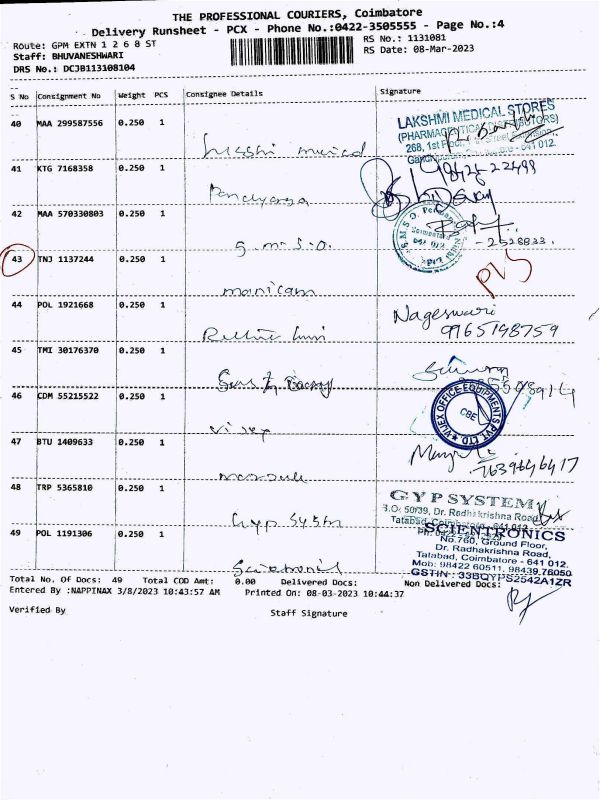 THE PROFESSIONAL COURIERS, Coimbatore
Delivery Runsheet - PCX - Phone No.:0422-3505555 - Page No.:4
Route: GPM EXTN 1 2 6 8 ST
RS No.: 1131081
Staff: BHUVANESHWARI
RS Date: 08-Mar-2023
DRS No.: DCJB113108104
S No Consignment No Weight PCS Consignee Details Signature
40 MAA 299587556 0.250 1
LAKSHMI MEDICAL STORES
(PHARMACEUTICAL DISTRIBUTORS)
268, 1st Floor, Street Extension,
641 012.
41 KTG 7168358 0.250 1
98422-22499
42 MAA 570330803 0.250 1
G.M.S.O.
-2528833.
43 TNJ 1137244 0.250 1
manicam
PVS
44 POL 1921668 0.250 1
Nageswari
9965198759
45 TMI 30176370 0.250 1
46 CDM 55215522 0.250 1
VIJEX OFFICE EQUIPMENTS PVT LTD
CBE
47 BTU 1409633 0.250 1
7639646417
48 TRP 5365810 0.250 1
Gyp System
GYP SYSTEM
50/39, Dr. Radhakrishna Road,
Tatabad, Coimbatore - 641 012.
49 POL 1191306 0.250 1
SCIENTRONICS
No.760, Ground Floor,
Dr. Radhakrishna Road,
Tatabad, Coimbatore - 641 012.
Mob: 98422 60511, 98439 76050
GSTIN : 33BQYPS2542A1ZR
Total No. Of Docs: 49 Total COD Amt: 0.00 Delivered Docs: Non Delivered Docs:
Entered By :NAPPINAX 3/8/2023 10:43:57 AM Printed On: 08-03-2023 10:44:37
Verified By Staff Signature